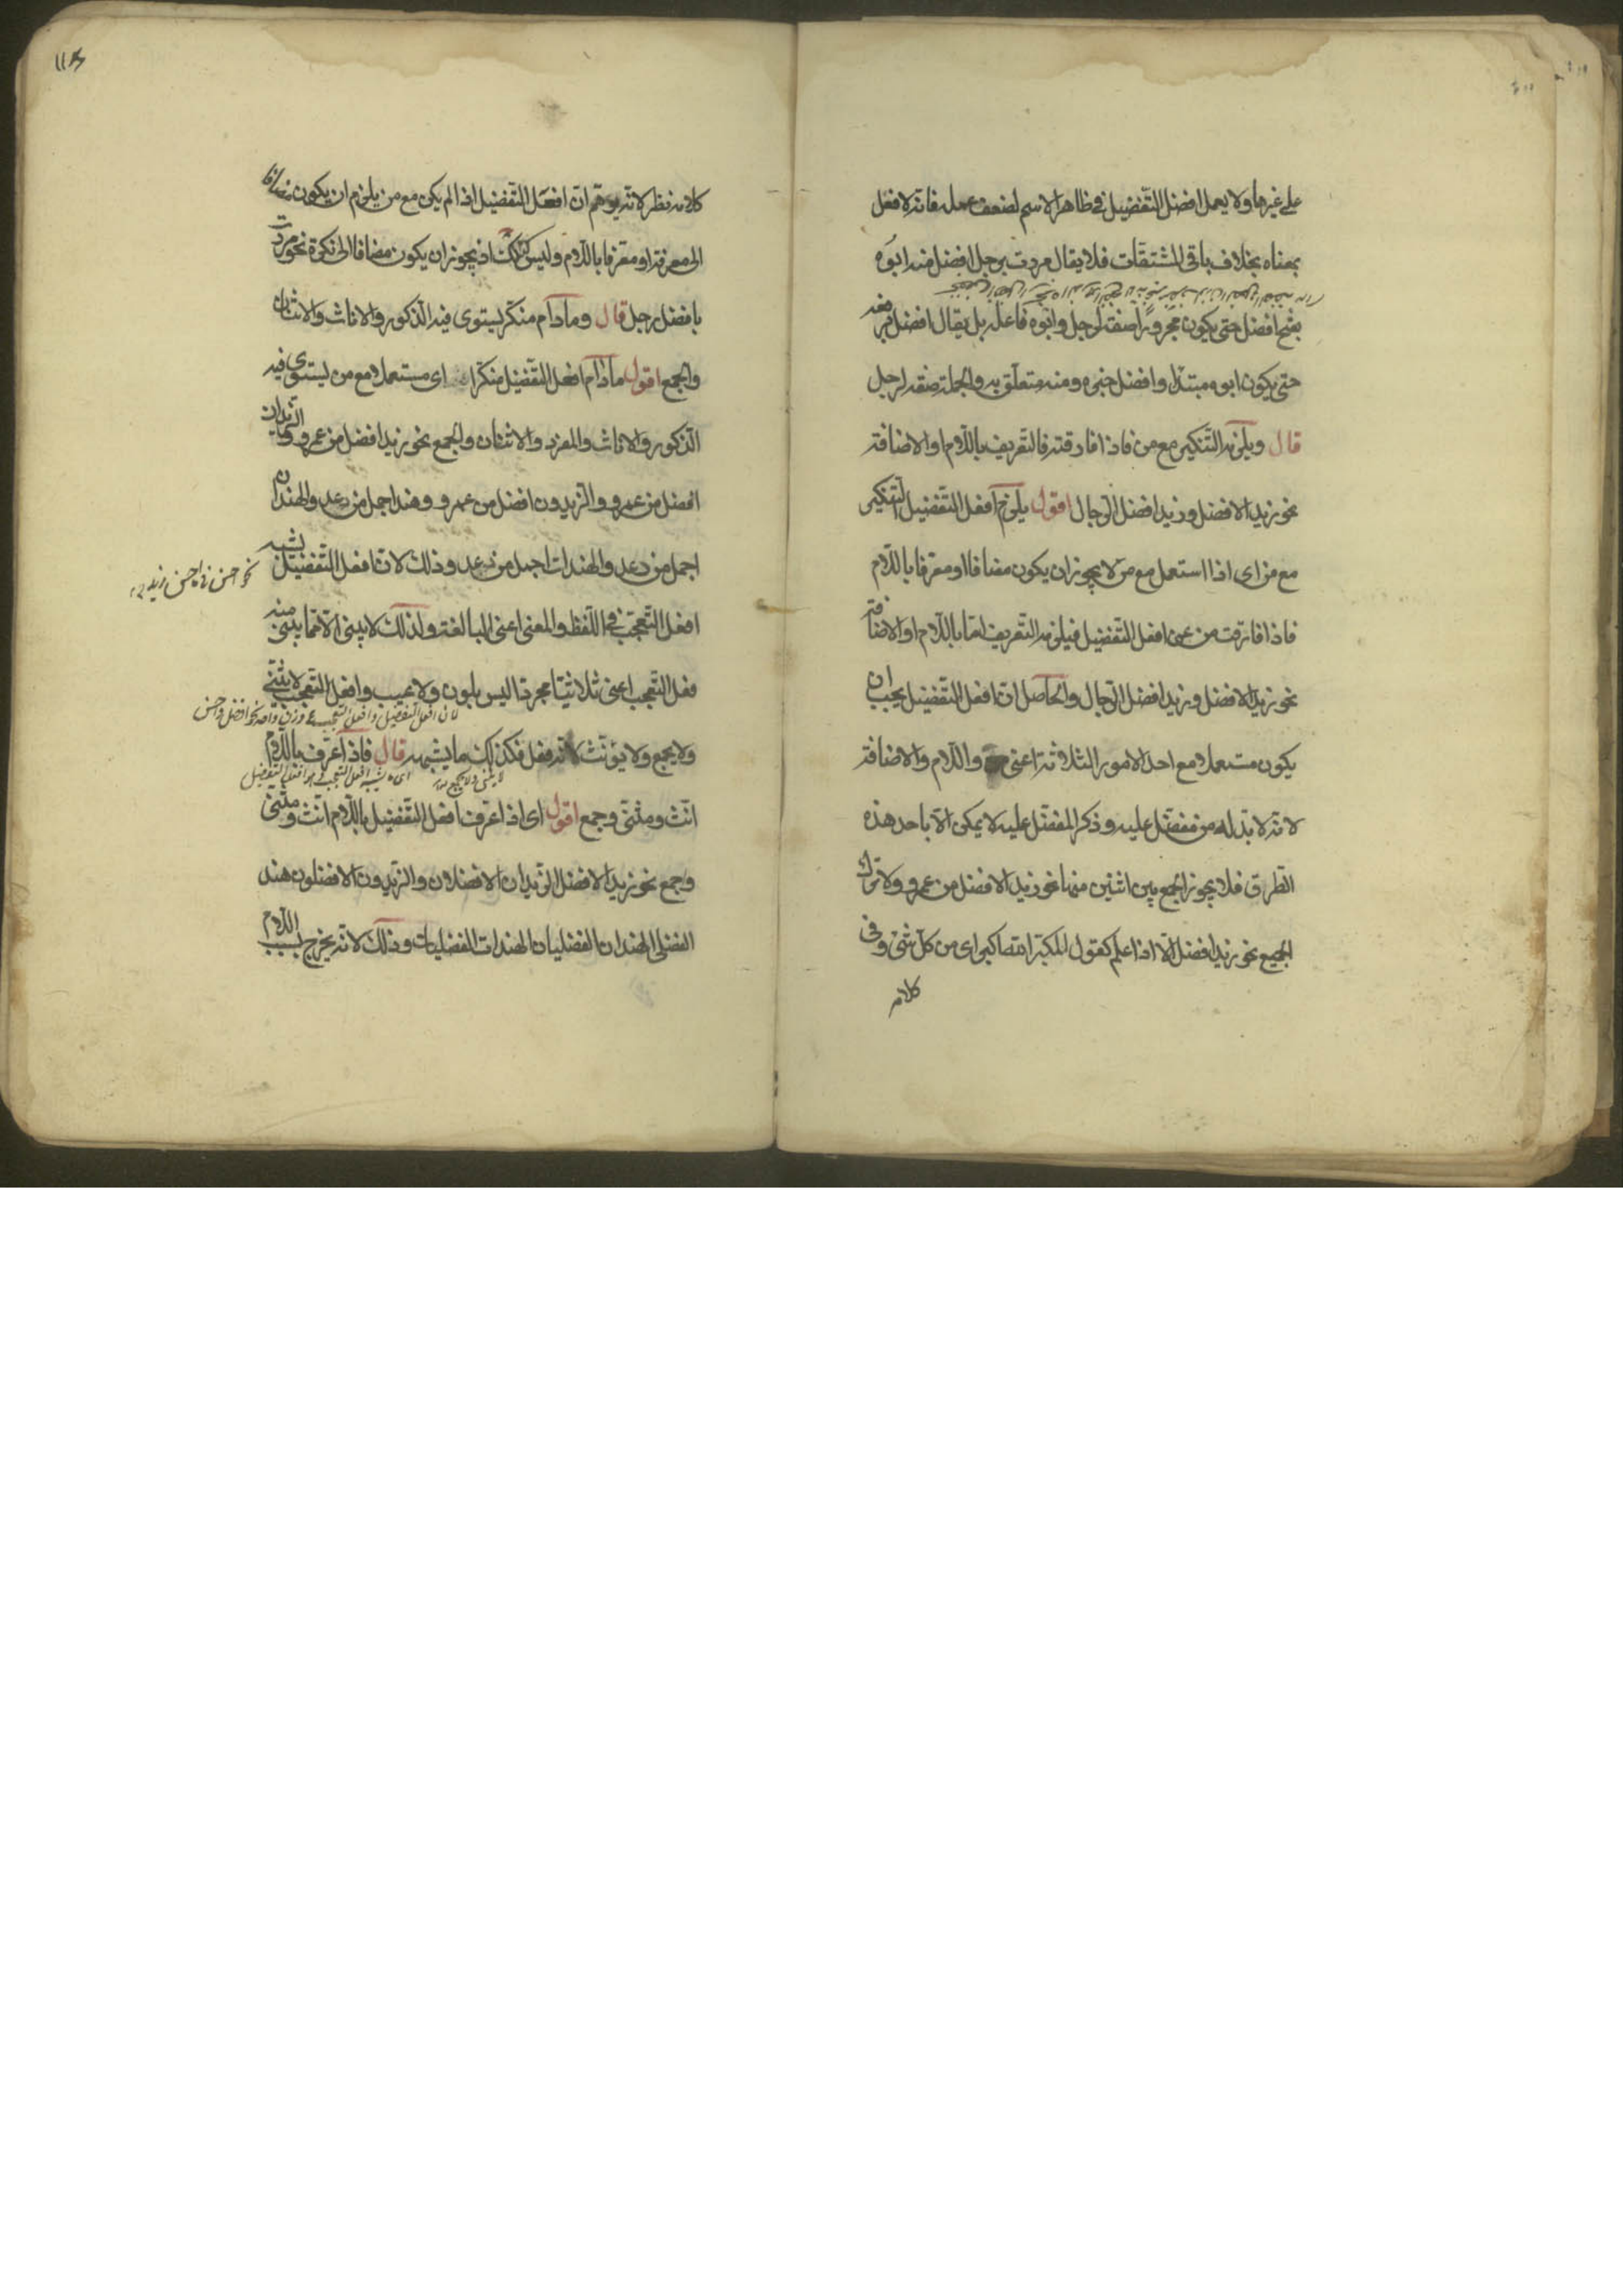 على غيرها ولا يعمل افضل التفضيل في ظاهر الاسم لضعف عمله فانه لا فعل
بمعناه بخلاف باقى المشتقات فلا يقال مررت برجل افضل منه ابوه
بفتح افضل حتى يكون مجرورًا صفة لرجل وابوه فاعله بل يقال افضل برفعه
حتى يكون ابوه مبتدأ وافضل خبره ومنه متعلق به والجملة صفة لرجل
قال ويلزمه التنكير مع من فاذا فارقته فالتعريف باللام او الاضافة
نحو زيد الافضل وزيد افضل الرجال اقول يلزم افعل التفضيل التنكير
مع من اى اذا استعمل مع من لا يجوز ان يكون مضافا او معرفا باللام
فاذا فارقت من عن افعل التفضيل فيلزمه التعريف امّا باللام او الاضافة
نحو زيد الافضل وزيد افضل الرجال والحاصل ان افعل التفضيل يجب ان
يكون مستعملا مع احد الامور الثلاثة اعنى من واللام والاضافة
لانه لا بد له من مفضل عليه وذكر المفضل عليه لا يمكن الا باحد هذه
الطرق فلا يجوز الجمع بين اثنين منها نحو زيد الافضل من عمرو ولا ترك
الجميع نحو زيد افضل الا اذا علم كقول المكبر الله اكبر اى من كل شئ وفى
كلامه
١١٤
كلامه نظر لانه يوهم ان افعل التفضيل اذا لم يكن مع من يلزم ان يكون مضافا
الى معرفة او معرفا باللام وليس كذلك اذ يجوز ان يكون مضافا الى نكرة نحو مررت
بافضل رجل قال وما دام منكر يستوى فيه الذكور والاناث والاثنان
والجمع اقول ما دام افعل التفضيل منكرا اى مستعملا مع من يستوى فيه
الذكور والاناث والمفرد والاثنان والجمع نحو زيد افضل من عمرو والزيدان
افضل من عمرو والزيدون افضل من عمرو وهند اجمل من دعد والهندان
اجمل من دعد والهندات اجمل من دعد وذلك لان افعل التفضيل يشبه
افعل التعجب في اللفظ والمعنى اعنى المبالغة ولذلك لا يبنى الا مما يبنى منه
فعل التعجب اعنى ثلاثيا مجردا ليس بلون ولا عيب وافعل التعجب لا يثنى
لان افعل التفضيل وافعل التعجب على وزن واحد نحو افضل واحسن
ولا يجمع ولا يؤنث لانه فعل فكذلك ما يشبهه قال فاذا عرف باللام
لا يثنى ولا يجمع
اى ما يشبه افعل التعجب وهو افعل التفضيل
انث ومثنى وجمع اقول اى اذا عرف افعل التفضيل باللام انث ومثنى
وجمع نحو زيد الافضل الزيدان الافضلان والزيدون الافضلون هند
الفضلى الهندان الفضليان الهندات الفضليات وذلك لانه يخرج بسبب اللام